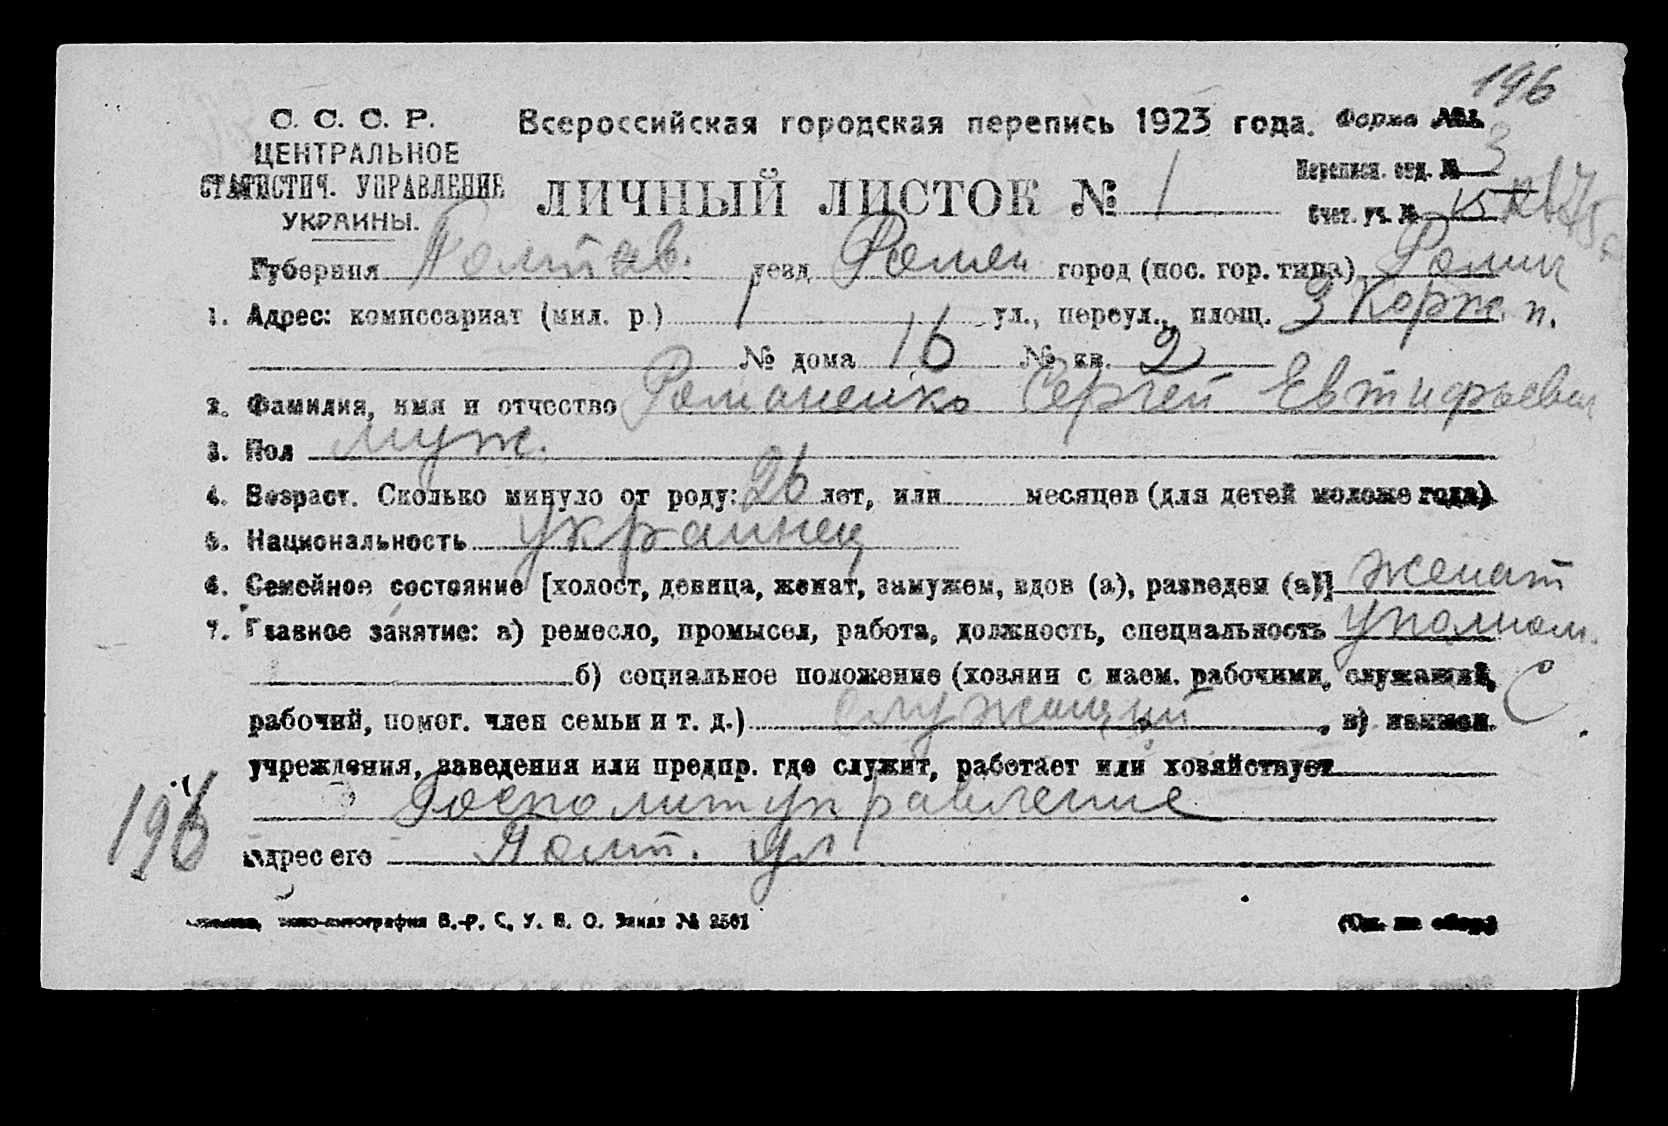 196
С. С. С. Р.
ЦЕНТРАЛЬНОЕ
СТАТИСТИЧ. УПРАВЛЕНИЕ
УКРАИНЫ.
Всероссийская городская перепись 1923 года. Форма №1.
ЛИЧНЫЙ ЛИСТОК № 1
Переписн. отд. № 3
Счет. уч. №
Губерния Полтав. уезд Ромен город (пос. гор. типа) Ромны
1. Адрес: комиссариат (мил. р.) 1 ул., переул., площ. 3 Корж. п.
№ дома 16 № кв. 2
2. Фамилия, имя и отчество Романенко Сергей Евтифьевич
3. Пол муж.
4. Возраст. Сколько минуло от роду: 26 лет, или месяцев (для детей моложе года)
5. Национальность украинец
6. Семейное состояние [холост, девица, женат, замужем, вдов (а), разведен (а)] женат
7. Главное занятие: а) ремесло, промысел, работа, должность, специальность уполном.
б) социальное положение (хозяин с наем. рабочими, служащий, С
рабочий, помог. член семьи и т. д.) служащий, в) наимен.
учреждения, заведения или предпр. где служит, работает или хозяйствует
Госполитуправление
196
Адрес его Полт. ул
В.-Р. С. У. В. О. Заказ № 2561
(См. на обор.)